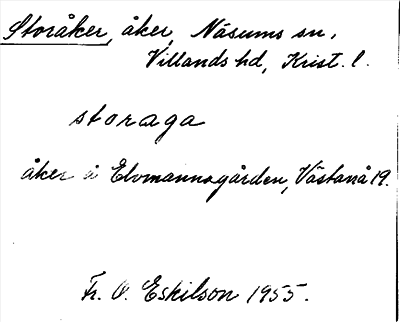 Storåker, åker, Näsums sn,
Villands hd, Krist. l.
storaga
åker å Elvmannagården, Västanå 19.
Fr. O. Eskilson 1955.